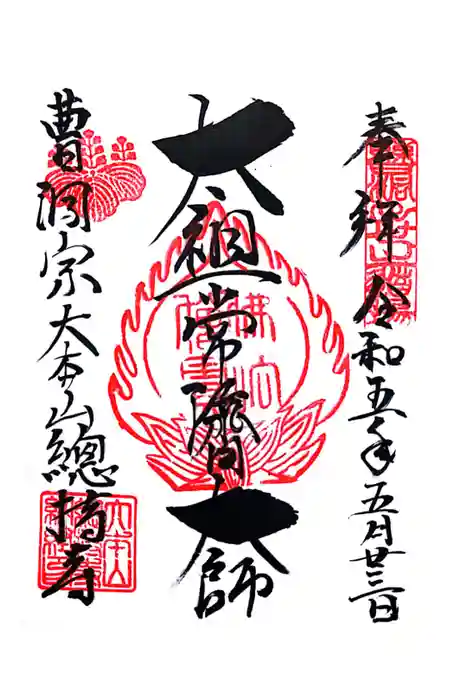 奉拝 令和五年五月廿三日
太祖常済大師
曹洞宗大本山總持寺